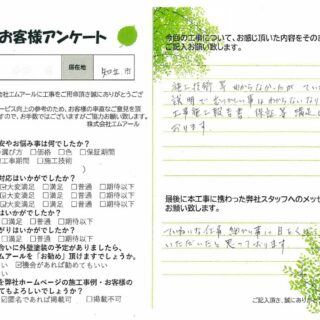 お客様アンケート
居在地
知立 市
エムアールに工事をご用命頂き誠にありがとうござ
ービス向上の参考のため、お客様の率直なご意見を頂
すので、お手数ではございますがご協力お願い致します。
株式会社エムアール
安やお悩み事は何でしたか?
選び方 □価格 □色 □保証期間
工事期間 □施工技術
対応はいかがでしたか?
大変満足 □満足 □普通 □期待以下
大変満足 □満足 □普通 □期待以下
はいかがでしたか?
大変満足 □満足 □普通 □期待以下
がりはいかがでしたか?
□満足 □普通 □期待以下
合いに外壁塗装の予定がありましたら、
ムアールを「お勧め」頂けますでしょうか。
い 機会があれば勧めてもいい
を弊社ホームページの施工事例・お客様の
てもよろしいでしょうか?
匿名であれば掲載可 □掲載不可
今回の工事について、お感じ頂いた内容をその
ご記入お願い致します。
施工技術等 分からなかったが
説明で
工事施工報告書 保証等 満足し
おります。
最後に本工事に携わった弊社スタッフへのメッセ
お願い致します。
いただいたと思っております
ご記入頂き、誠にあり